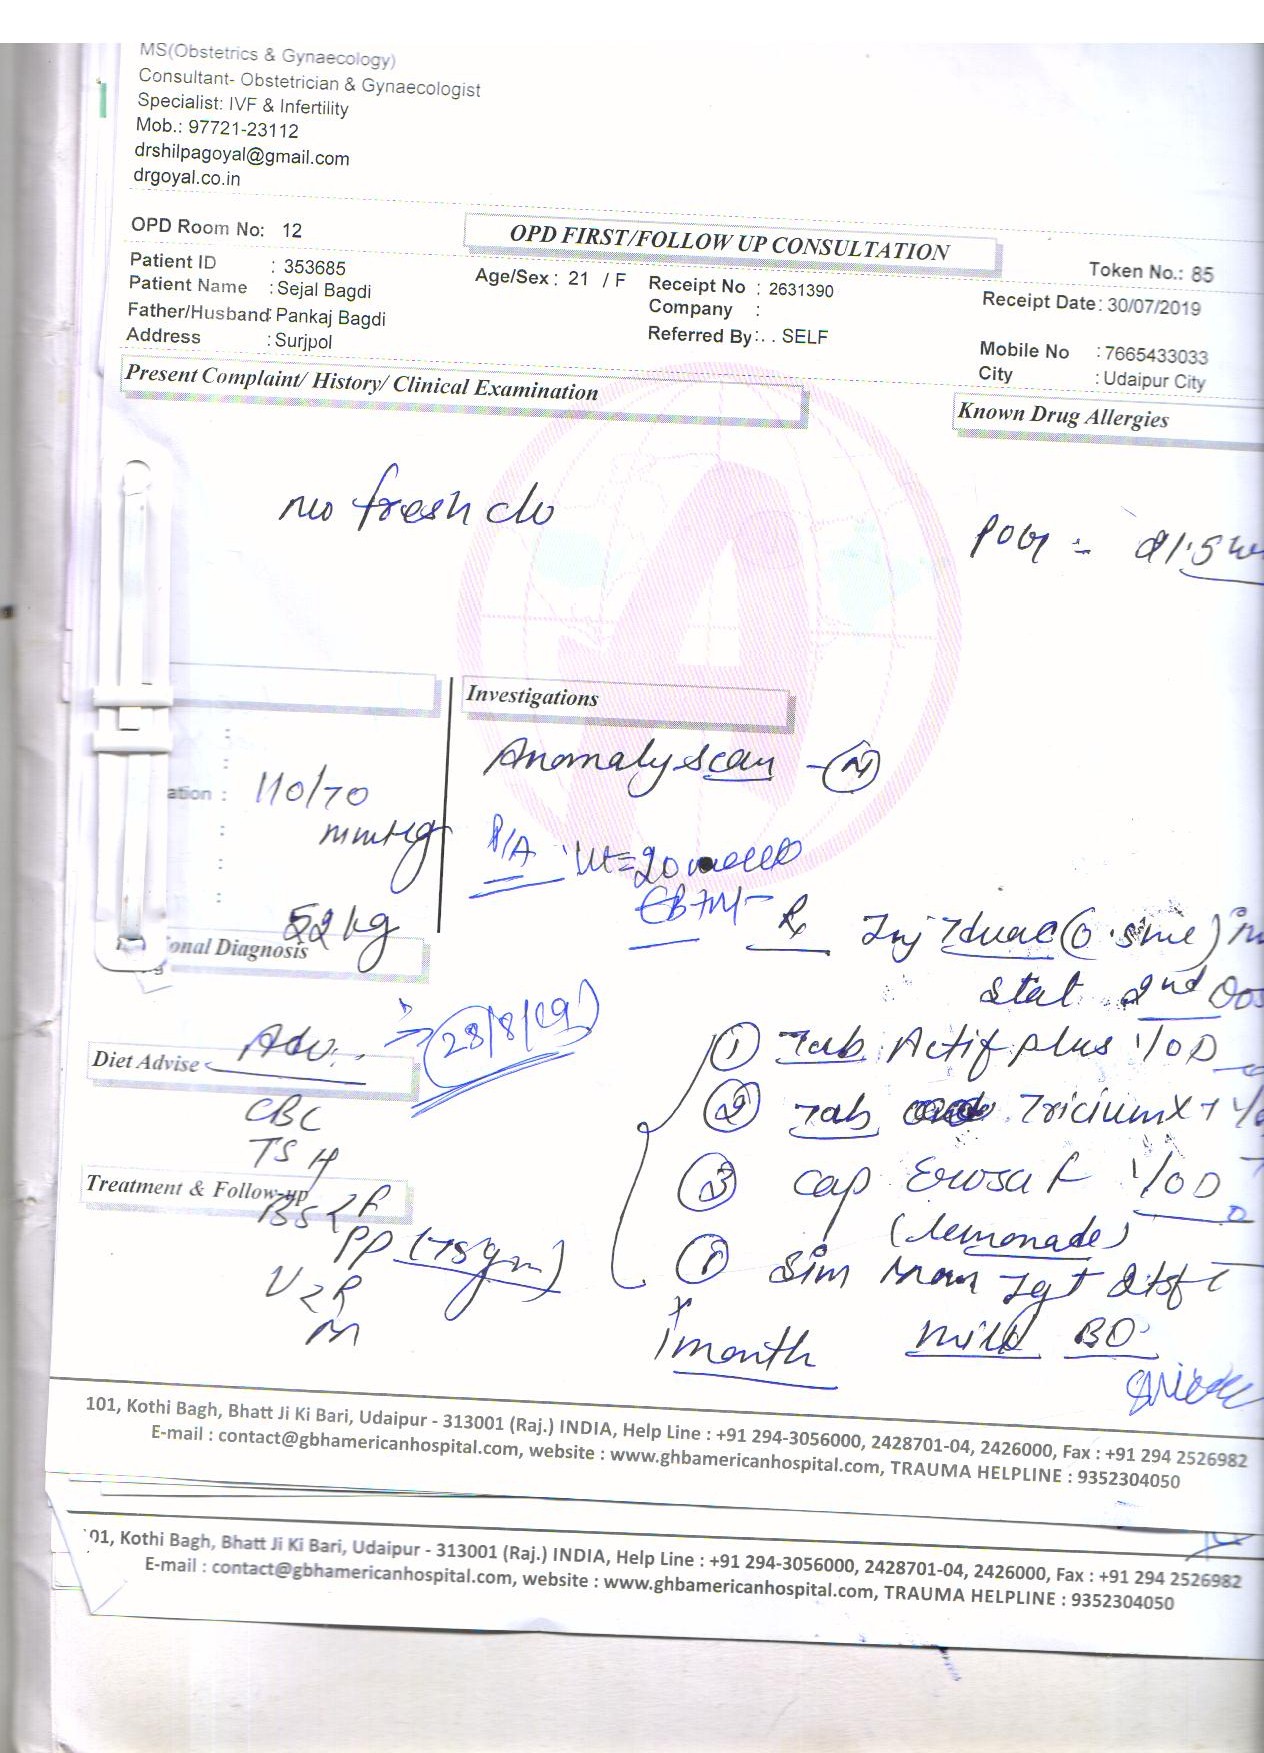 MS(Obstetrics & Gynaecology)
Consultant- Obstetrician & Gynaecologist
Specialist: IVF & Infertility
Mob.: 97721-23112
drshilpagoyal@gmail.com
drgoyal.co.in
OPD Room No: 12
OPD FIRST/FOLLOW UP CONSULTATION
Token No.: 85
Patient ID : 353685
Age/Sex : 21 / F
Receipt No : 2631390
Receipt Date: 30/07/2019
Patient Name : Sejal Bagdi
Company :
Father/Husband: Pankaj Bagdi
Referred By: . . SELF
Mobile No : 7665433033
Address : Surjpol
City : Udaipur City
Present Complaint/ History/ Clinical Examination
Known Drug Allergies
no fresh c/o
POG = 21.5 w
Investigations
Anomaly scan - N
ation : 110/70
mmHg
P/A : Ut = 20 weeks
52 kg
Rx Inj (0.5ml) im
onal Diagnosis
stat 2nd Dos
28/8/19
Adv.
Diet Advise
1 Tab Actif plus 1/OD
2 Tab
CBC
TSH
3 Cap 1/OD
Treatment & Follow-up
BS < F
PP (75gm)
(lemonade)
Sim Mom 2tsf c
milk BD
x
1 month
101, Kothi Bagh, Bhatt Ji Ki Bari, Udaipur - 313001 (Raj.) INDIA, Help Line : +91 294-3056000, 2428701-04, 2426000, Fax : +91 294 2526982
E-mail : contact@gbhamericanhospital.com, website : www.ghbamericanhospital.com, TRAUMA HELPLINE : 9352304050
101, Kothi Bagh, Bhatt Ji Ki Bari, Udaipur - 313001 (Raj.) INDIA, Help Line : +91 294-3056000, 2428701-04, 2426000, Fax : +91 294 2526982
E-mail : contact@gbhamericanhospital.com, website : www.ghbamericanhospital.com, TRAUMA HELPLINE : 9352304050